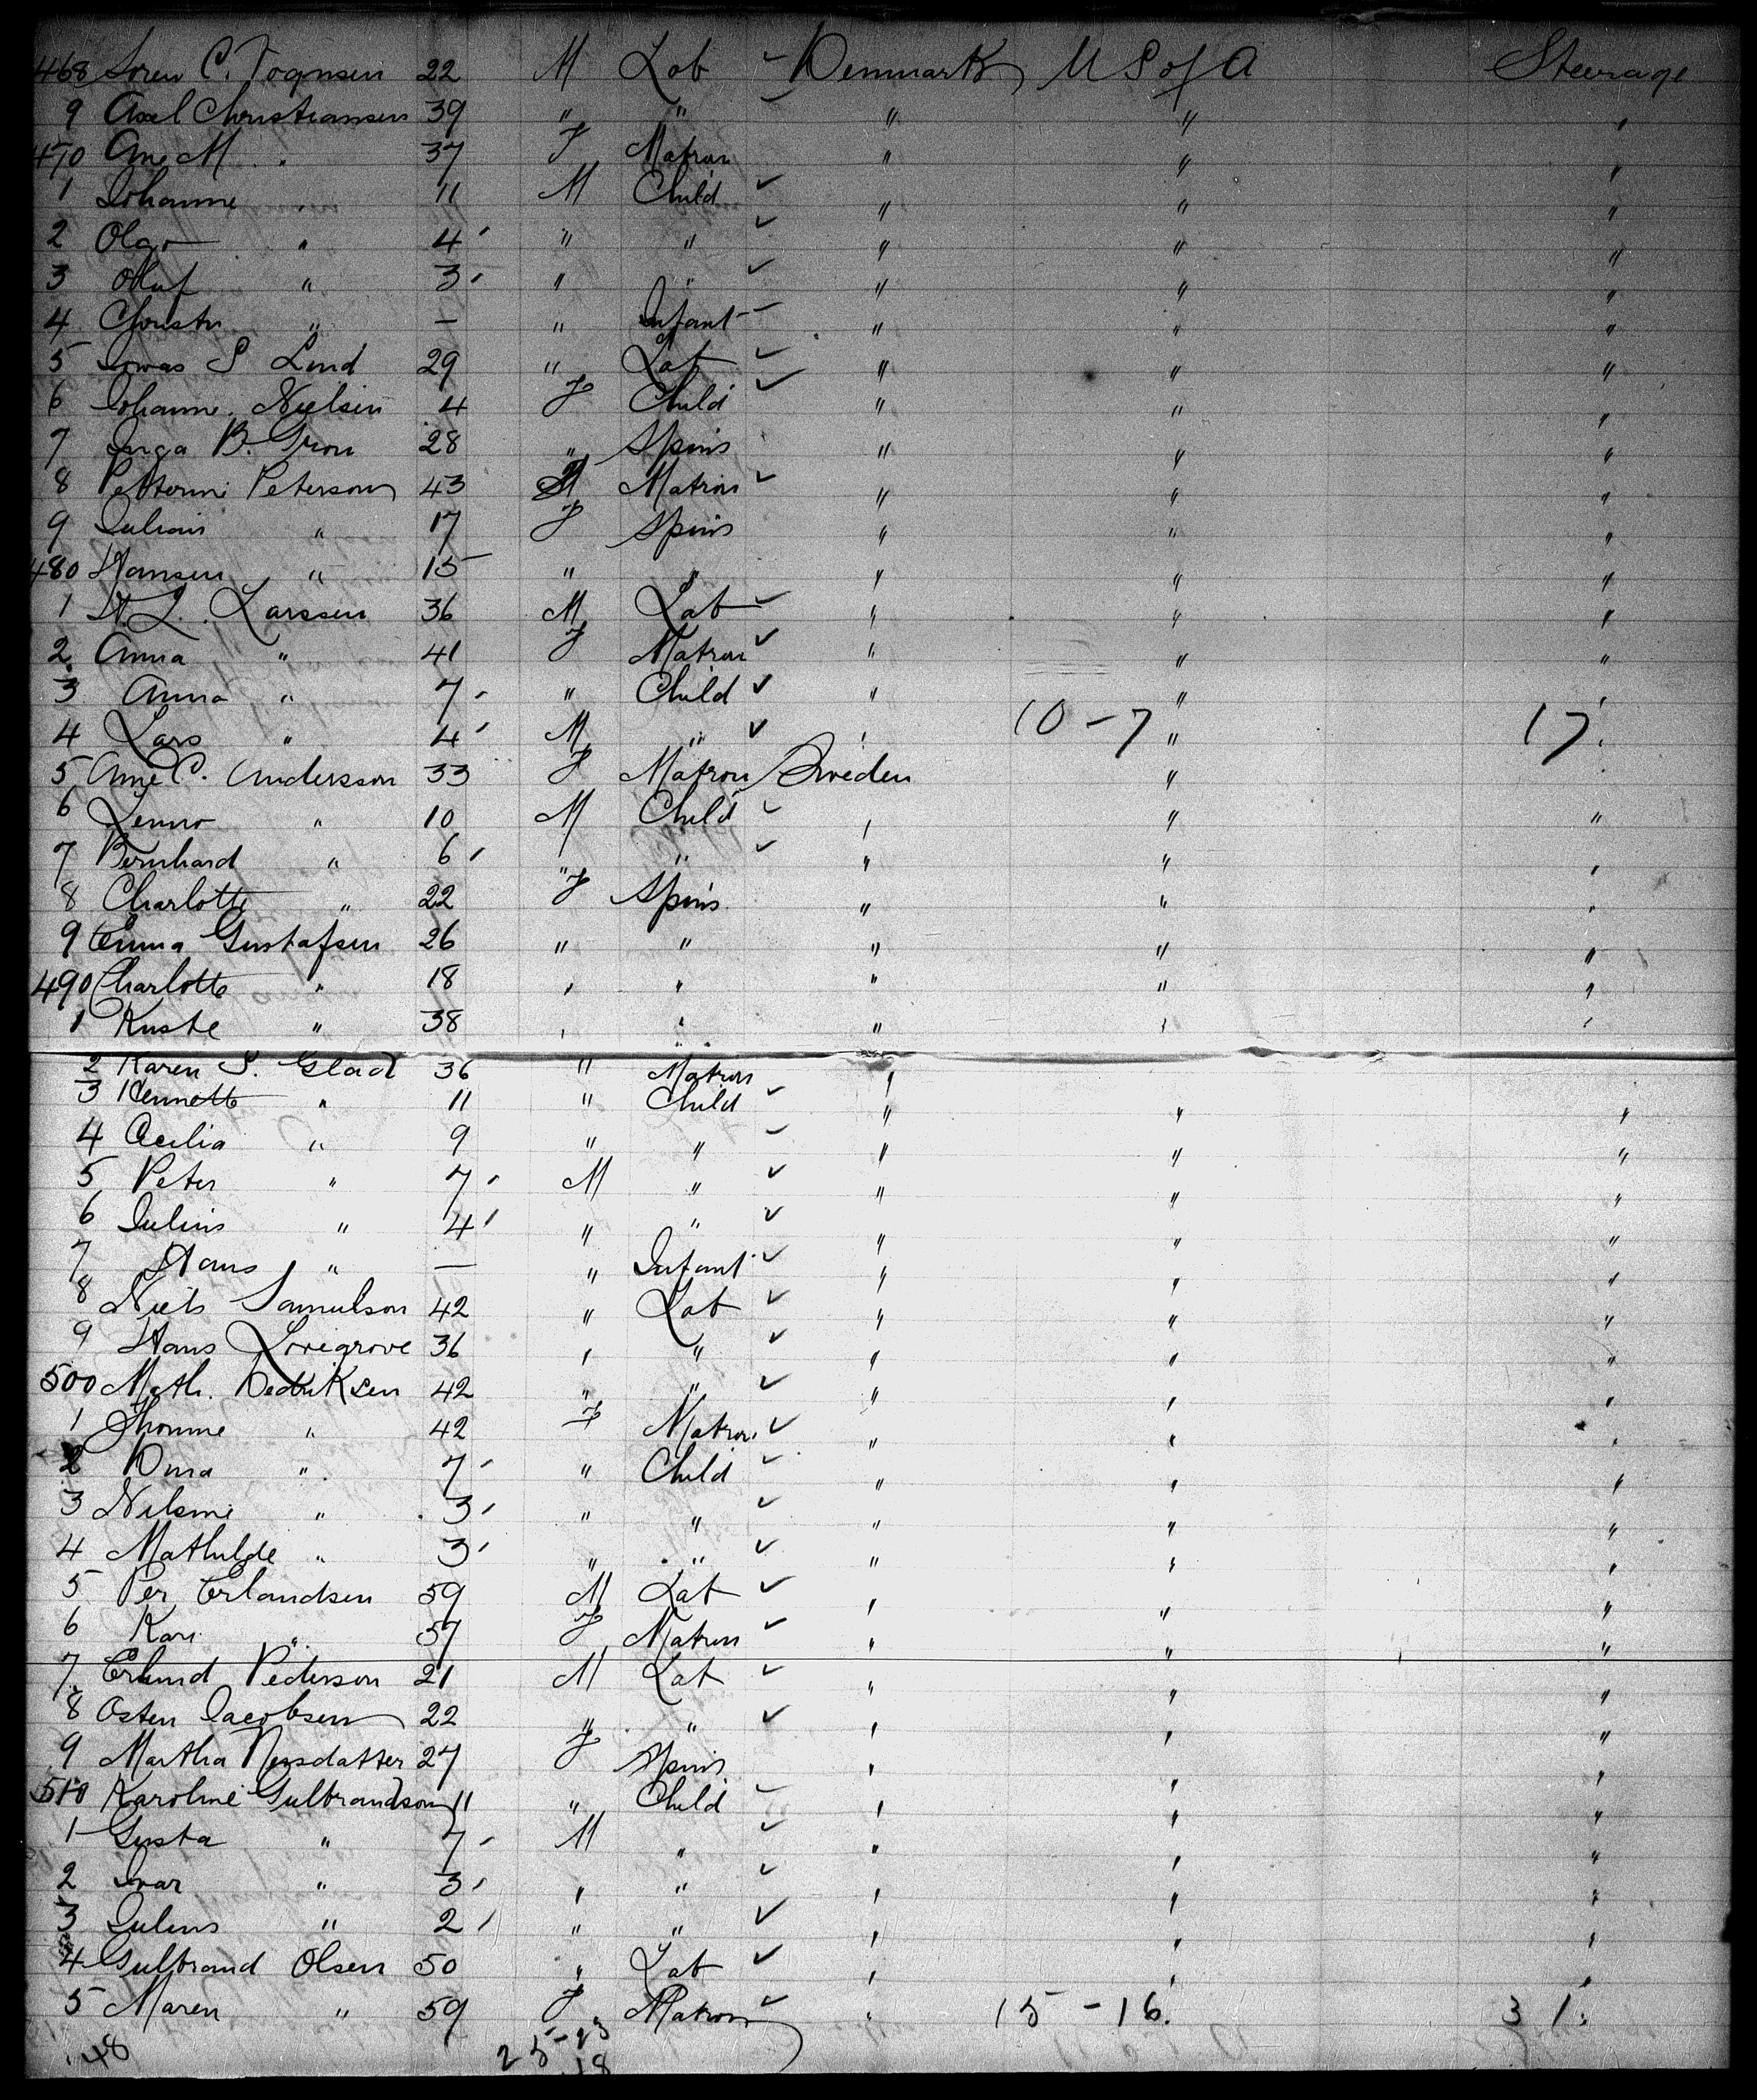 468 Soren C. Vognsen 22 M Lab Denmark U S of A Steerage
9 Axel Christiansen 39 " " " " "
470 Ane M. " 37 F Matron " " "
1 Johanne " 11 M Child " " "
2 Olga " 4 " " " " "
3 Oluf " 3 " " " " "
4 Christn " — " Infant " " "
5 Jonas S Lund 29 " Lab " " "
6 Johanne Nielsen 4 F Child " " "
7 Inga B. Gron 28 " Spins " " "
8 Petterine Peterson 43 Matron " " "
9 " 17 F Spins " " "
480 Hansen " 15 " " " " "
1 L. Larssen 36 M Lab " " "
2 Anna " 41 F Matron " " "
3 Anna " 7 " Child " " "
4 Lars " 4 M " " 10 - 7 " 17
5 Ane C. Andersson 33 F Matron Sweden "
6 " 10 M Child " " "
7 Bernhard " 6 " " " " "
8 Charlotte " 22 F Spins " " "
9 Emma Gustafsen 26 " " " " "
490 Charlotte " 18 " " " " "
1 " 38 " " " " "
2 Karen S. Glad 36 " Matron "
3 Hennette " 11 " Child " " "
4 Cecilia " 9 " " " " "
5 Peter " 7 M " " " "
6 Julius " 4 " " " " "
7 Hans " — " Infant " " "
8 Niels Samuelson 42 " Lab " " "
9 Hans Lovegrove 36 " " " " "
500 Math. Dedriksen 42 " " " " "
1 " 42 F Matron " " "
2 " 7 " Child " " "
3 Nilsine " 3 " " " " "
4 Mathilde " 3 " " " " "
5 Per Erlandsen 59 M Lab " " "
6 Kari " 57 F Matron " " "
7 Erland Pederson 21 M Lab " " "
8 Osten Jacobsen 22 " " " " "
9 Martha 27 F Spins " " "
510 Karoline Gulbrandson 11 " Child " " "
1 Gusta " 7 M " " " "
2 Ivar " 3 " " " " "
3 Julius " 2 " " " " "
4 Gulbrand Olsen 50 " Lab " " "
5 Maren " 59 F Matron " 15 - 16. 31
48 25-23
18